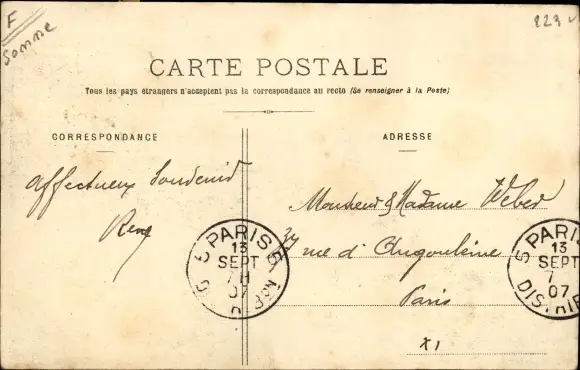 F
Somme
223
CARTE POSTALE
Tous les pays étrangers n'acceptent pas la correspondance au recto (Se renseigner à la Poste)
CORRESPONDANCE
ADRESSE
Affectueux Souvenir
René
Monsieur & Madame Weber
37 rue d'Angoulème
Paris
XI
PARIS
13
SEPT
07
5 PARIS
13
SEPT
7
07
DISTRIB